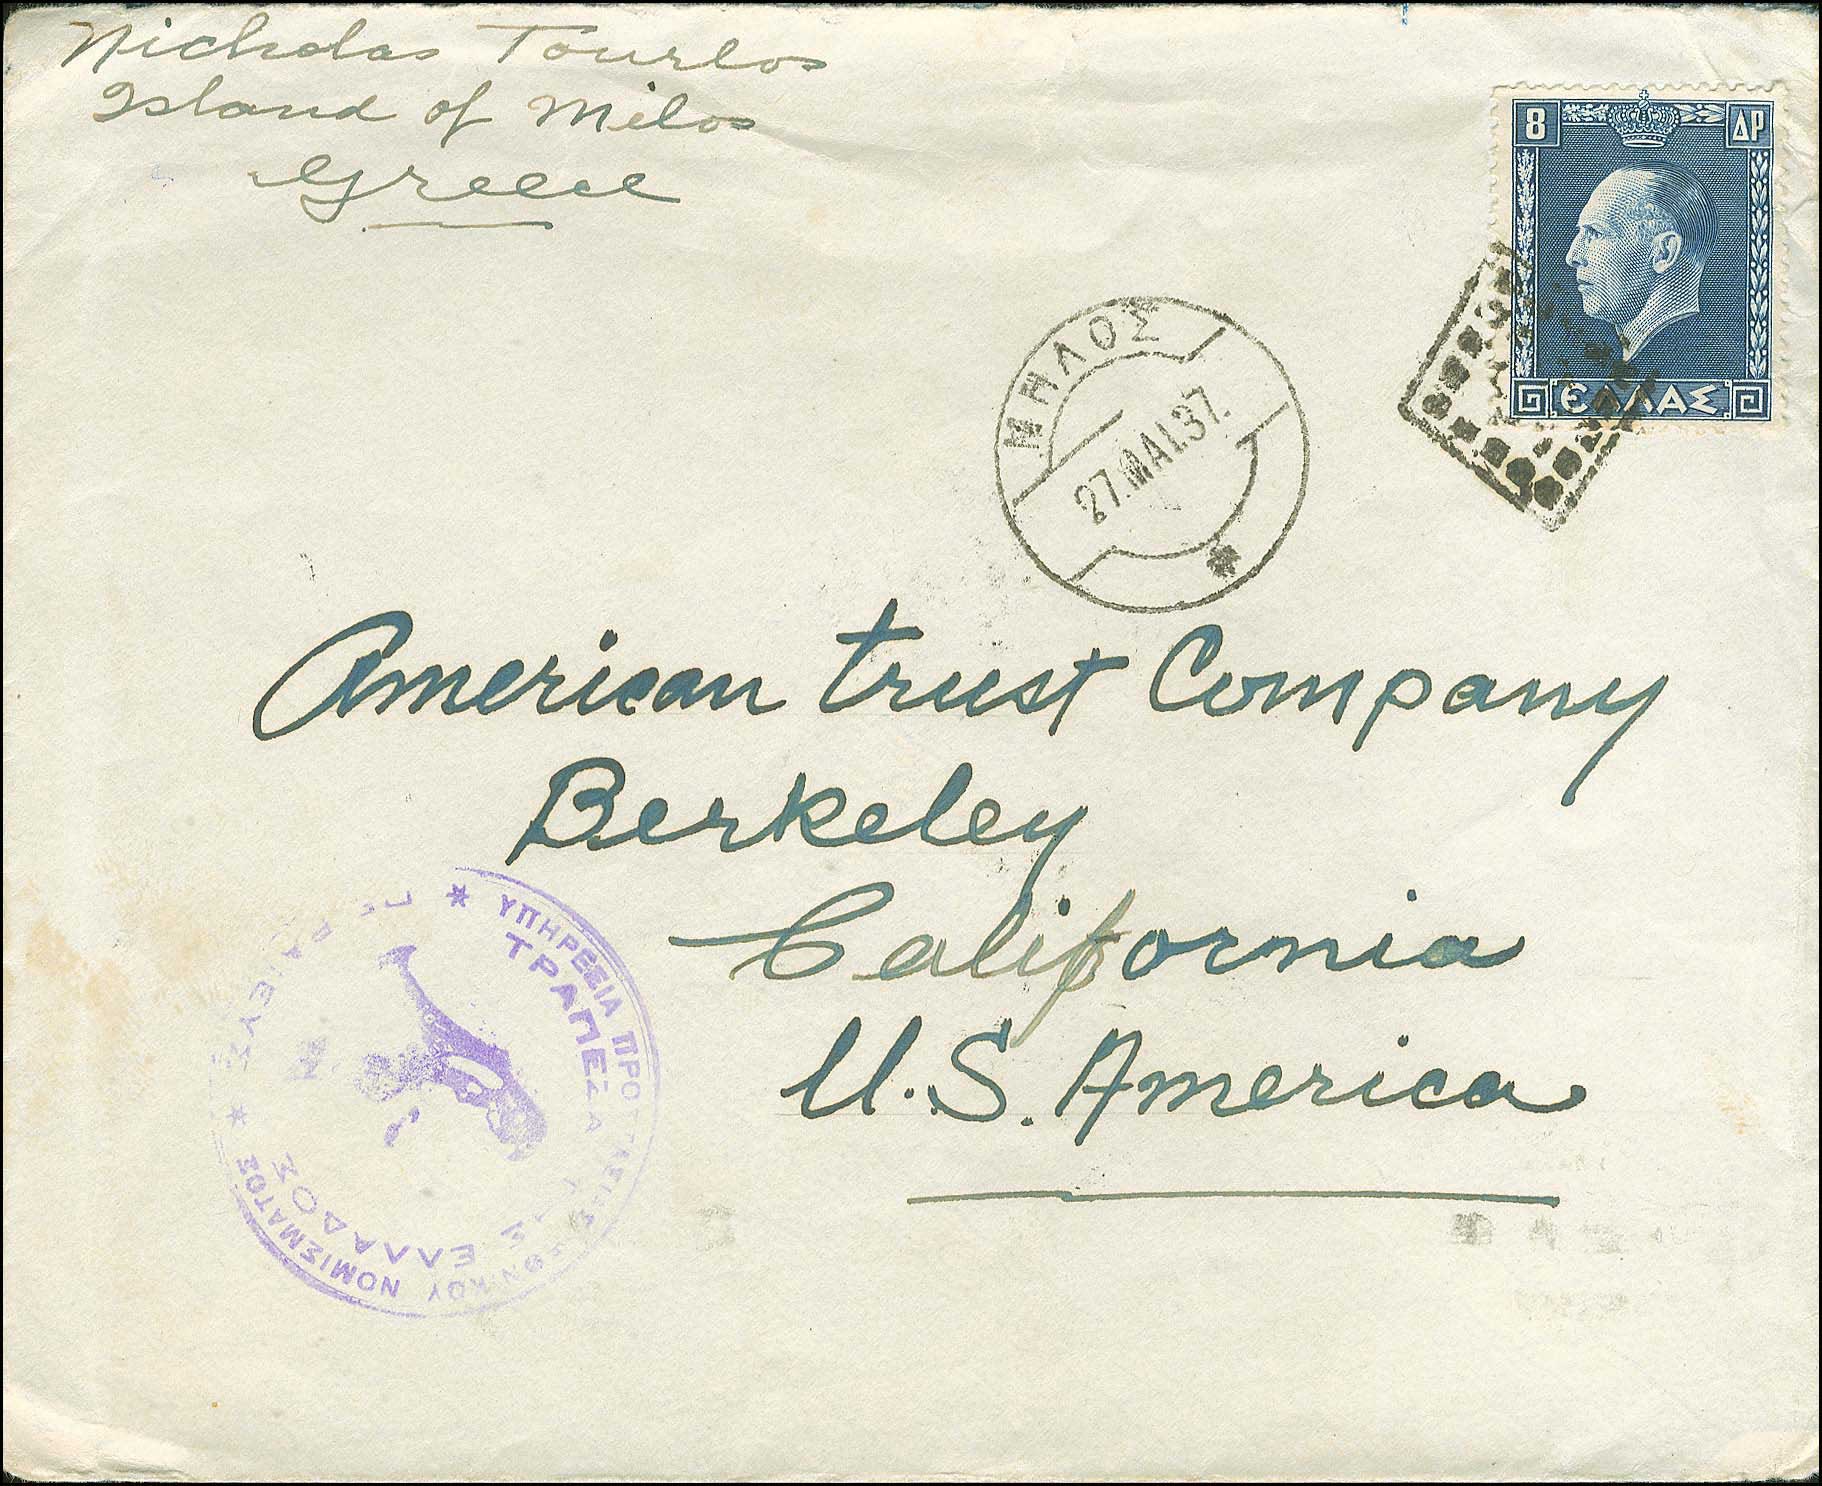 Nicholas Tourlos
Island of Milos
Greece
8 ΔΡ
ΕΛΛΑΣ
ΜΗΛΟΣ
27.ΜΑΙ.37.
American Trust Company
Berkeley
California
U.S. America
* ΥΠΗΡΕΣΙΑ ΠΡΟΣΤΑΣΙΑΣ ΕΘΝΙΚΟΥ ΝΟΜΙΣΜΑΤΟΣ *
ΤΡΑΠΕΖΑ
ΕΛΛΑΔΟΣ